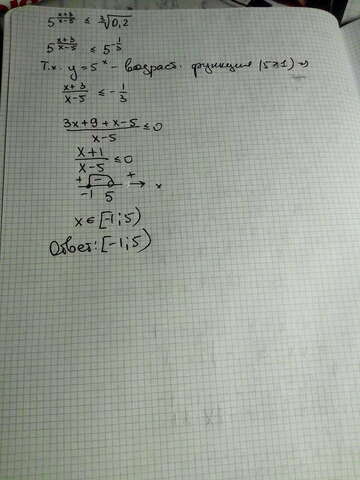 5^((x+3)/(x-5)) ≤ ∛0,2
5^((x+3)/(x-5)) ≤ 5^(-1/3)
Т.к. y = 5^x - возраст. функция (5>1) ⇒
(x+3)/(x-5) ≤ -1/3
(3x+9+x-5)/(x-5) ≤ 0
(x+1)/(x-5) ≤ 0
+ - + → x
-1 5
x ∈ [-1; 5)
Ответ: [-1; 5)